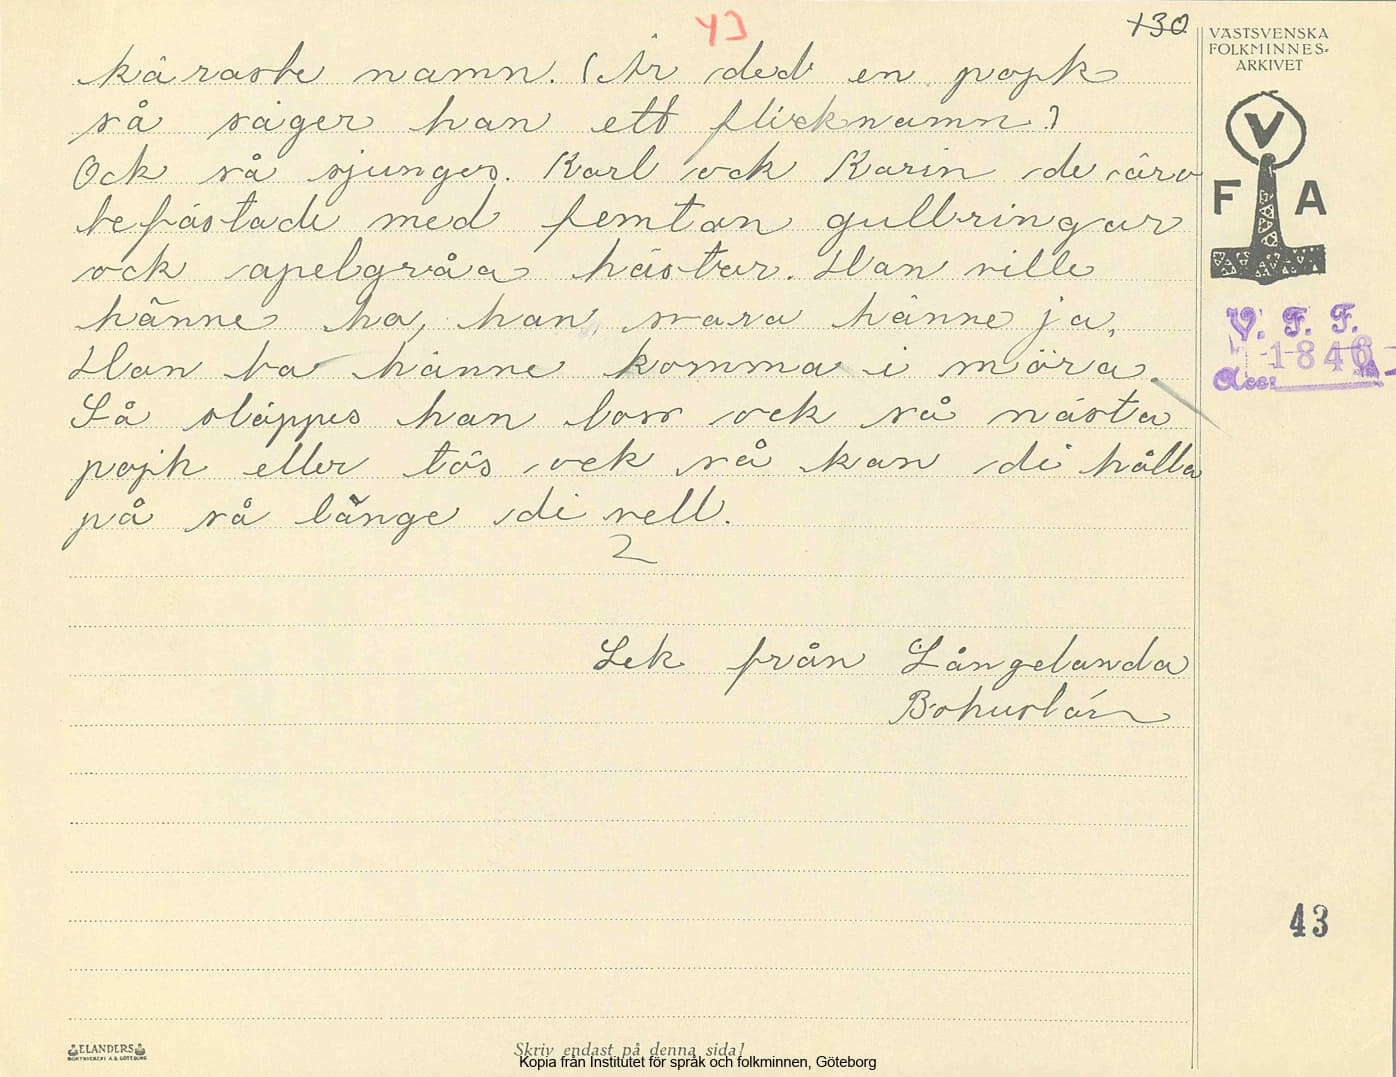 43
130
VÄSTSVENSKA
FOLKMINNES-
ARKIVET
V
F A
käraste namn. (Är ded en pojk
så säger han ett flicknamn.)
Ock så sjunges. Karl ock Karin de äro
befästade med femton gullringar
ock apelgråa hästar. Han ville
hänne ha, han svara hänne ja,
Han ba hänne komma i mörä.
Så släppes han loss ock så nästa
pojk eller tös ock så kan di hålla
på så länge di vell.
2
Lek från Långelanda
Bohuslän
V. F. F.
1846
Acc:
43
ELANDERS
BOKTRYCKERI A.B. GÖTEBORG
Skriv endast på denna sida!
Kopia från Institutet för språk och folkminnen, Göteborg